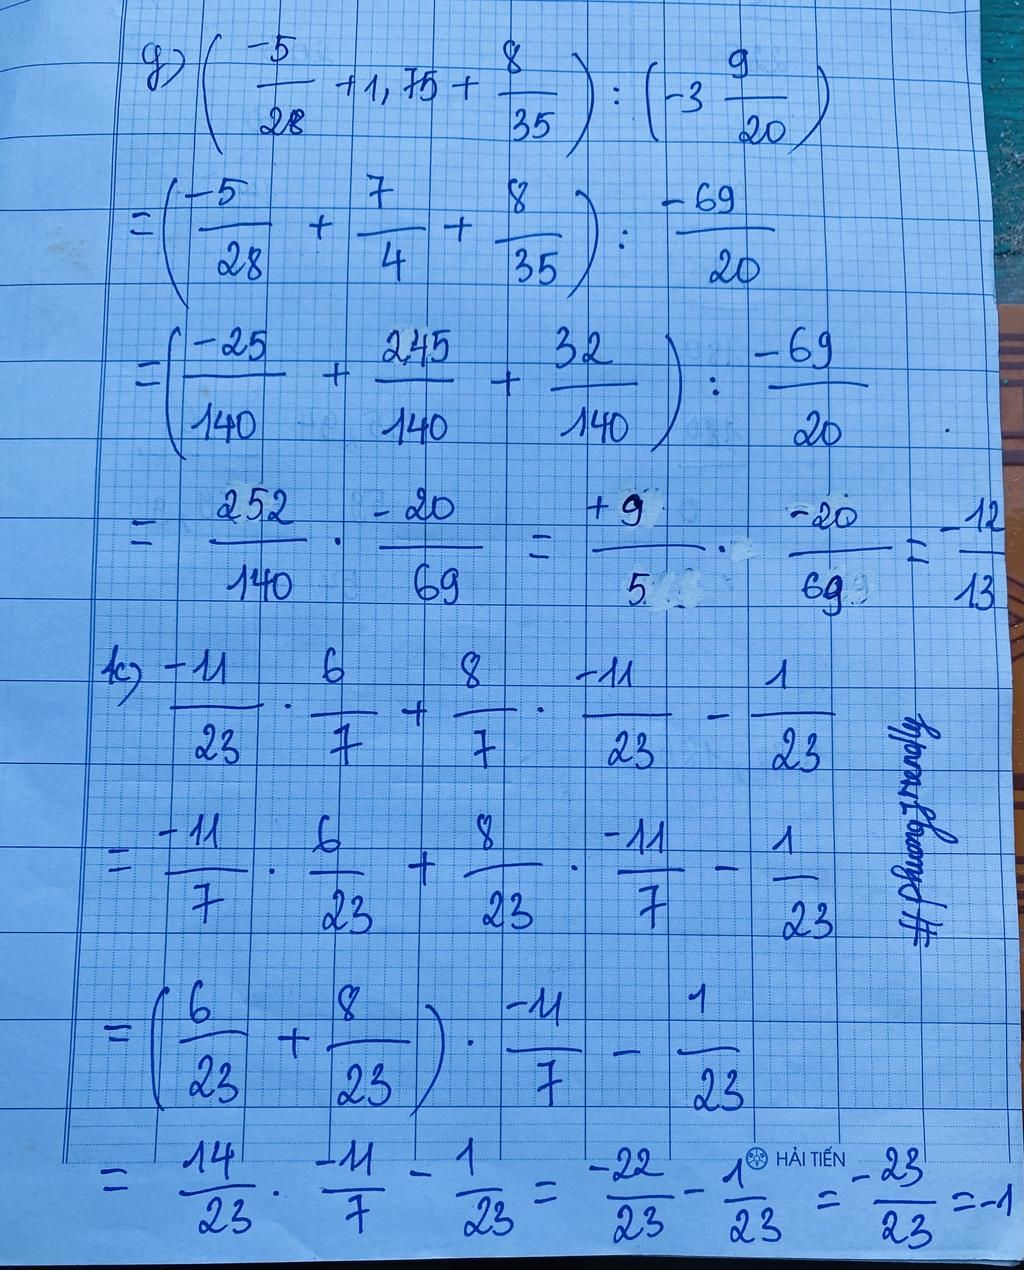 g) (-5/28 + 1,75 + 8/35) : (-3 9/20)
= (-5/28 + 7/4 + 8/35) : -69/20
= (-25/140 + 245/140 + 32/140) : -69/20
= 252/140 . -20/69 = +9/5 . -20/69 = -12/13
k) -11/23 . 6/7 + 8/7 . -11/23 - 1/23
= -11/7 . 6/23 + 8/23 . -11/7 - 1/23
= (6/23 + 8/23) . -11/7 - 1/23
HẢI TIẾN
= 14/23 . -11/7 - 1/23 = -22/23 - 1/23 = -23/23 = -1